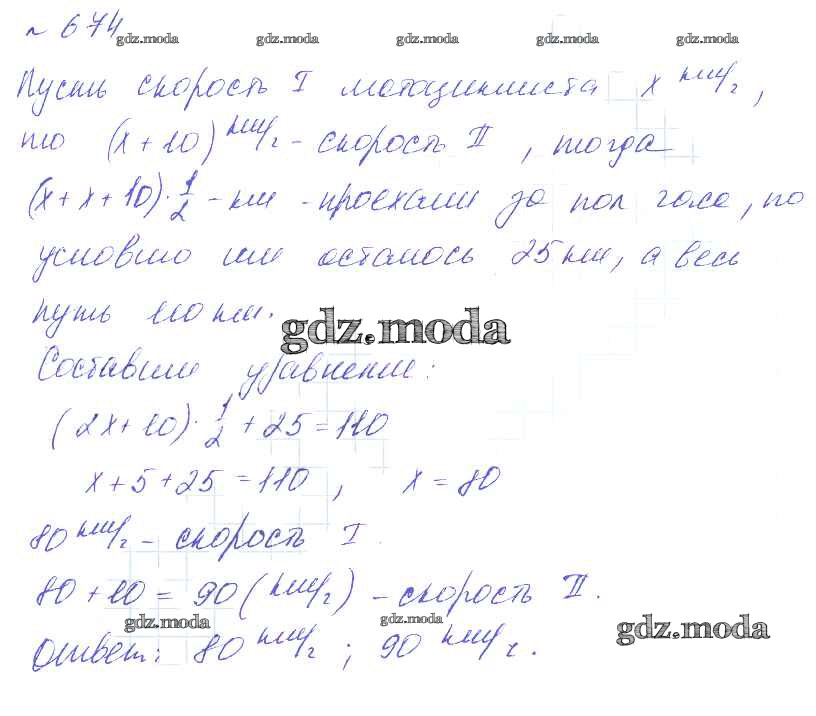 № 674
gdz.moda gdz.moda gdz.moda gdz.moda gdz.moda
Пусть скорость I мотоциклиста x км/г,
то (x+10) км/г - скорость II, тогда
(x+x+10)·1/2 - км - проехали за пол часа, по
условию им осталось 25 км, а весь
путь 110 км.
gdz.moda
Составим уравнение:
(2x+10)·1/2+25=110
x+5+25=110, x=80
80 км/г - скорость I.
80+10=90(км/г) - скорость II.
gdz.moda gdz.moda gdz.moda
Ответ: 80 км/г; 90 км/г.